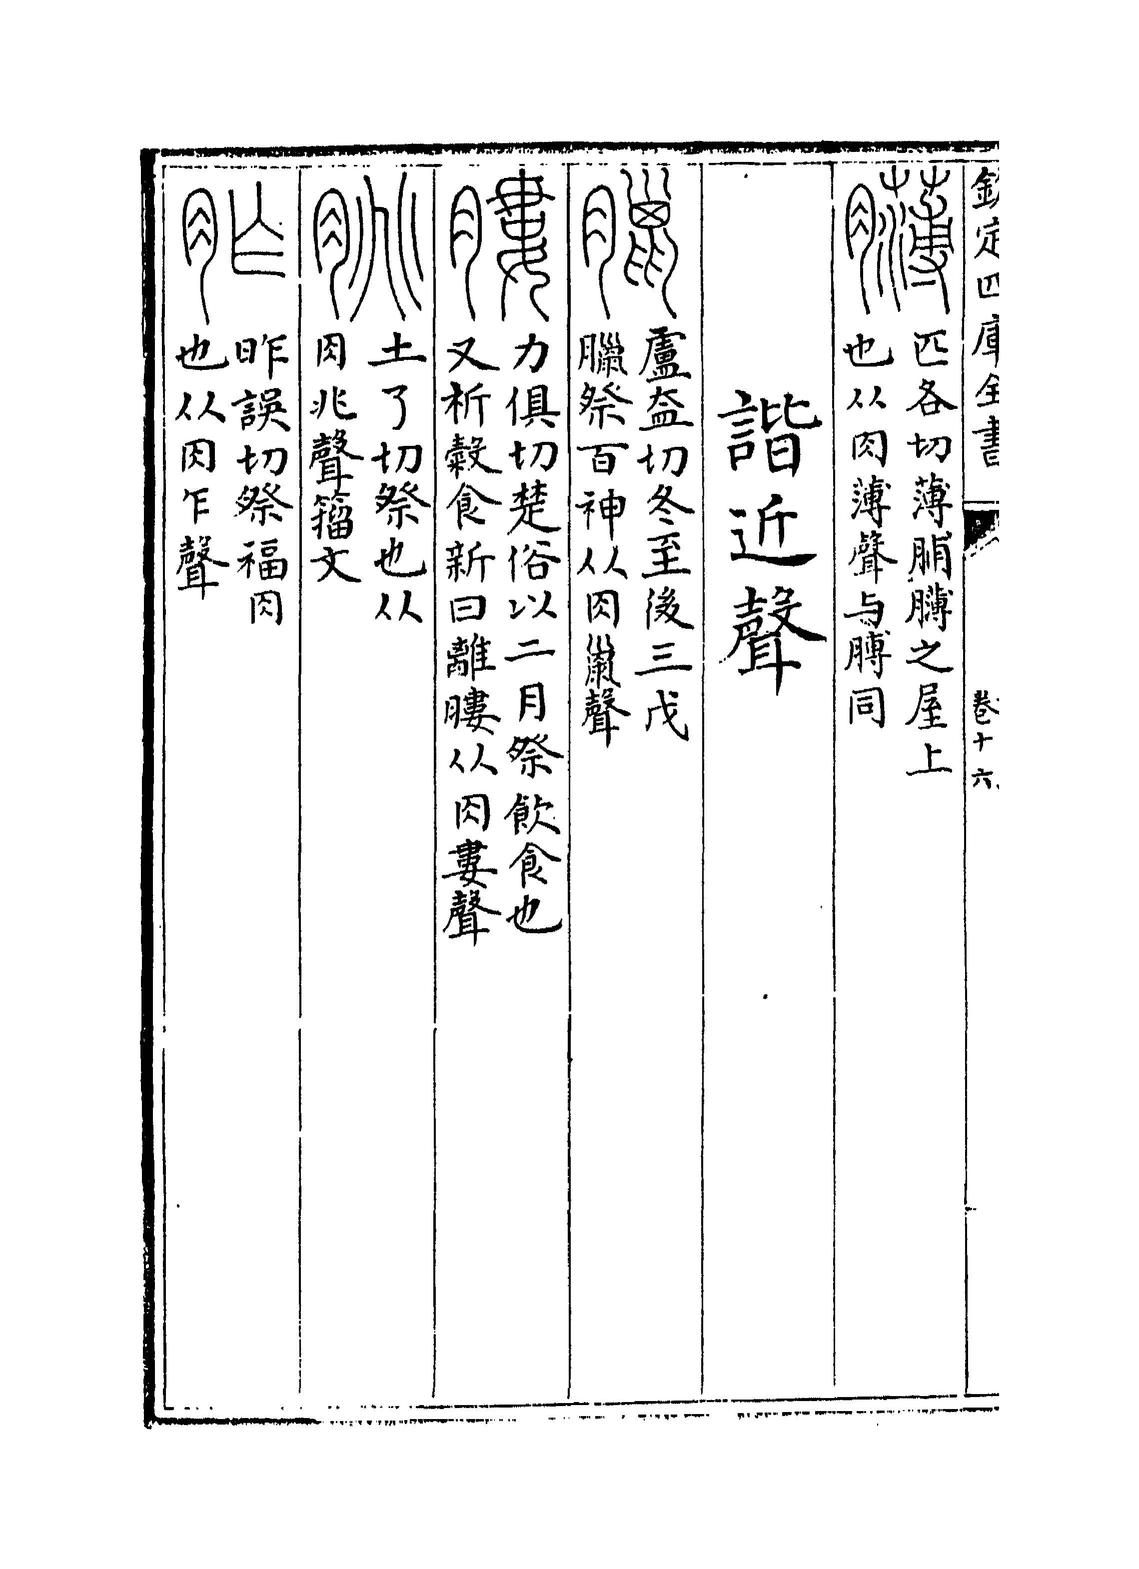 欽定四庫全書
卷十六
匹各切薄脯之屋上
也从肉薄聲与膊同
諧近聲
臘
盧盍切冬至後三戊
臘祭百神从肉巤聲
膢
力俱切楚俗以二月祭飲食也
又析穀食新曰離膢从肉婁聲
朓
土了切祭也从
肉兆聲籀文
胙
昨誤切祭福肉
也从肉乍聲